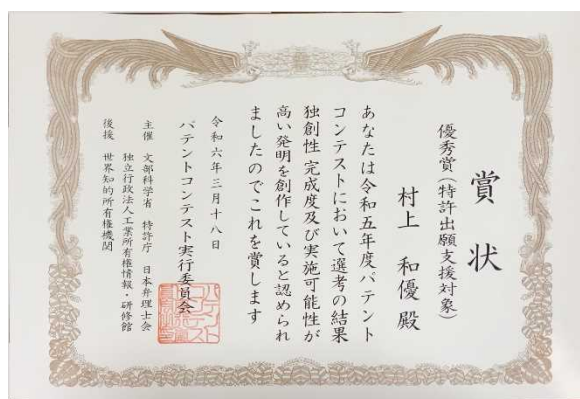 賞状
優秀賞(特許出願支援対象)
村上 和優 殿
あなたは令和五年度パテント
コンテストにおいて選考の結果
独創性 完成度及び実施可能性が
高い発明を創作していると認められ
ましたのでこれを賞します
令和六年三月十八日
パテントコンテスト実行委員会
主催 文部科学省 特許庁 日本弁理士会
独立行政法人工業所有権情報・研修館
後援 世界知的所有権機関